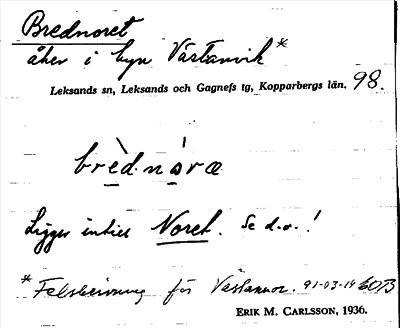 Brednoret
åker i byn Västanvik*
Leksands sn, Leksands och Gagnefs tg, Kopparbergs län. 98.
brèd.nóræ
Ligger intill Noret. Se d.o.!
*Felskrivning för Västannor. 91-03-14
ERIK M. CARLSSON, 1936.